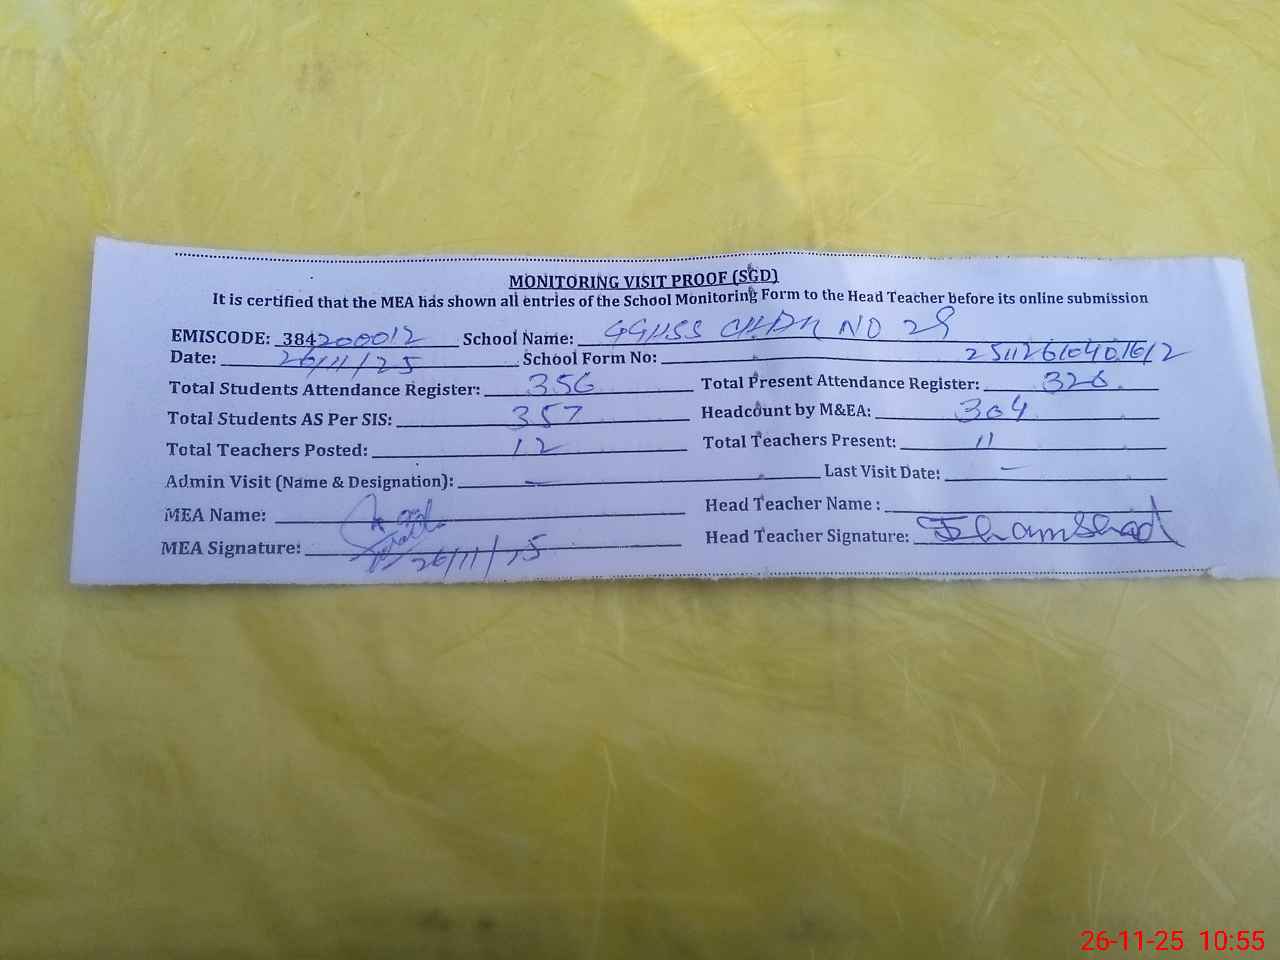 MONITORING VISIT PROOF (SGD)
It is certified that the MEA has shown all entries of the School Monitoring Form to the Head Teacher before its online submission
EMISCODE: 384200012 School Name: GGHSS CH.DN NO 29
Date: 26/11/25 School Form No:
Total Students Attendance Register: 356 Total Present Attendance Register: 326
Total Students AS Per SIS: 357 Headcount by M&EA: 304
Total Teachers Posted: 12 Total Teachers Present: 11
Admin Visit (Name & Designation): — Last Visit Date: —
MEA Name: Head Teacher Name :
MEA Signature: 26/11/25 Head Teacher Signature:
26-11-25 10:55